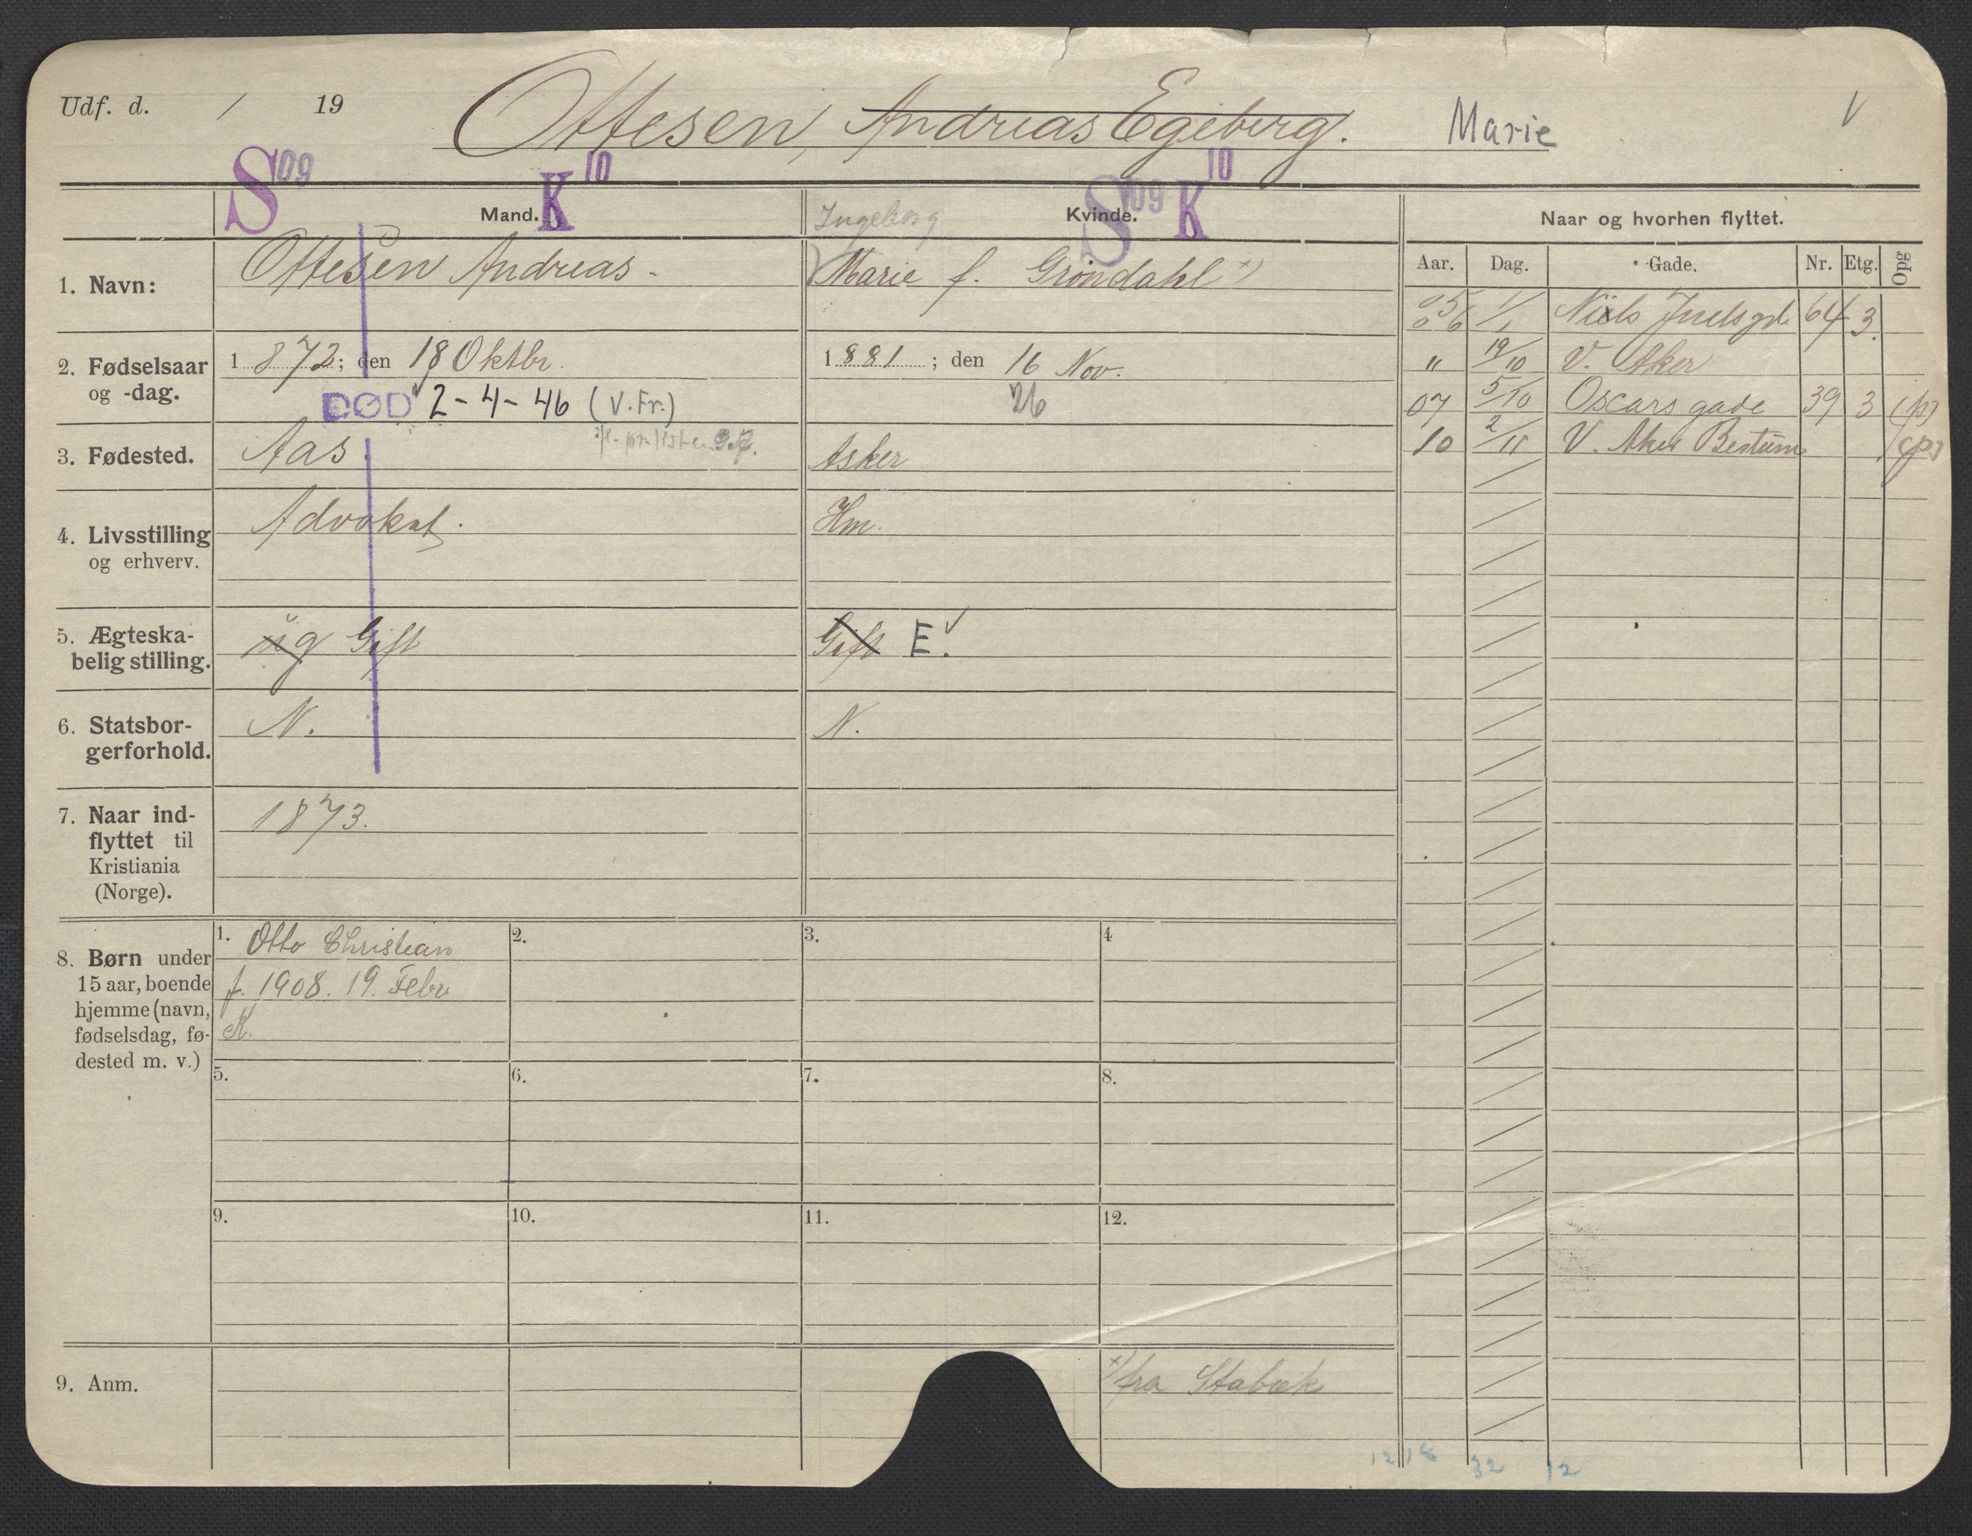 Udf. d. / 19 Ottesen, Andreas Egeberg. Marie
S 09 K 10 S 09 K 10
Mand. Ingeborg Kvinde. Naar og hvorhen flyttet.
Aar. Dag. Gade. Nr. Etg. Opg
1. Navn: Ottesen Andreas - Marie f. Grøndahl x)
05 1/1 Niels Juelsgd. 64 3
06 1/1
2. Fødselsaar og -dag. 1872; den 18 Oktbr. 1881; den 16 Nov.
" 19/10 V. Aker
DØD 2-4-46 (V.Fr.) 26
07 5/10 Oscars gade 39 3 (ps)
3. Fødested. Aas Asker
10 2/11 V. Aker Bestum (ps)
4. Livsstilling og erhverv. Advokat. Hm.
5. Ægteska-
belig stilling. ug Gift Gift E.
6. Statsbor-
gerforhold. N. N.
7. Naar ind-
flyttet til
Kristiania
(Norge).
1873.
8. Børn under
15 aar, boende
hjemme (navn,
fødselsdag, fø-
dested m. v.)
1. Otto Christian
f. 1908. 19. Febr.
K.
2.
3.
4
5.
6.
7.
8.
9.
10.
11.
12.
9. Anm. x) fra Stabæk
12 18 32 12